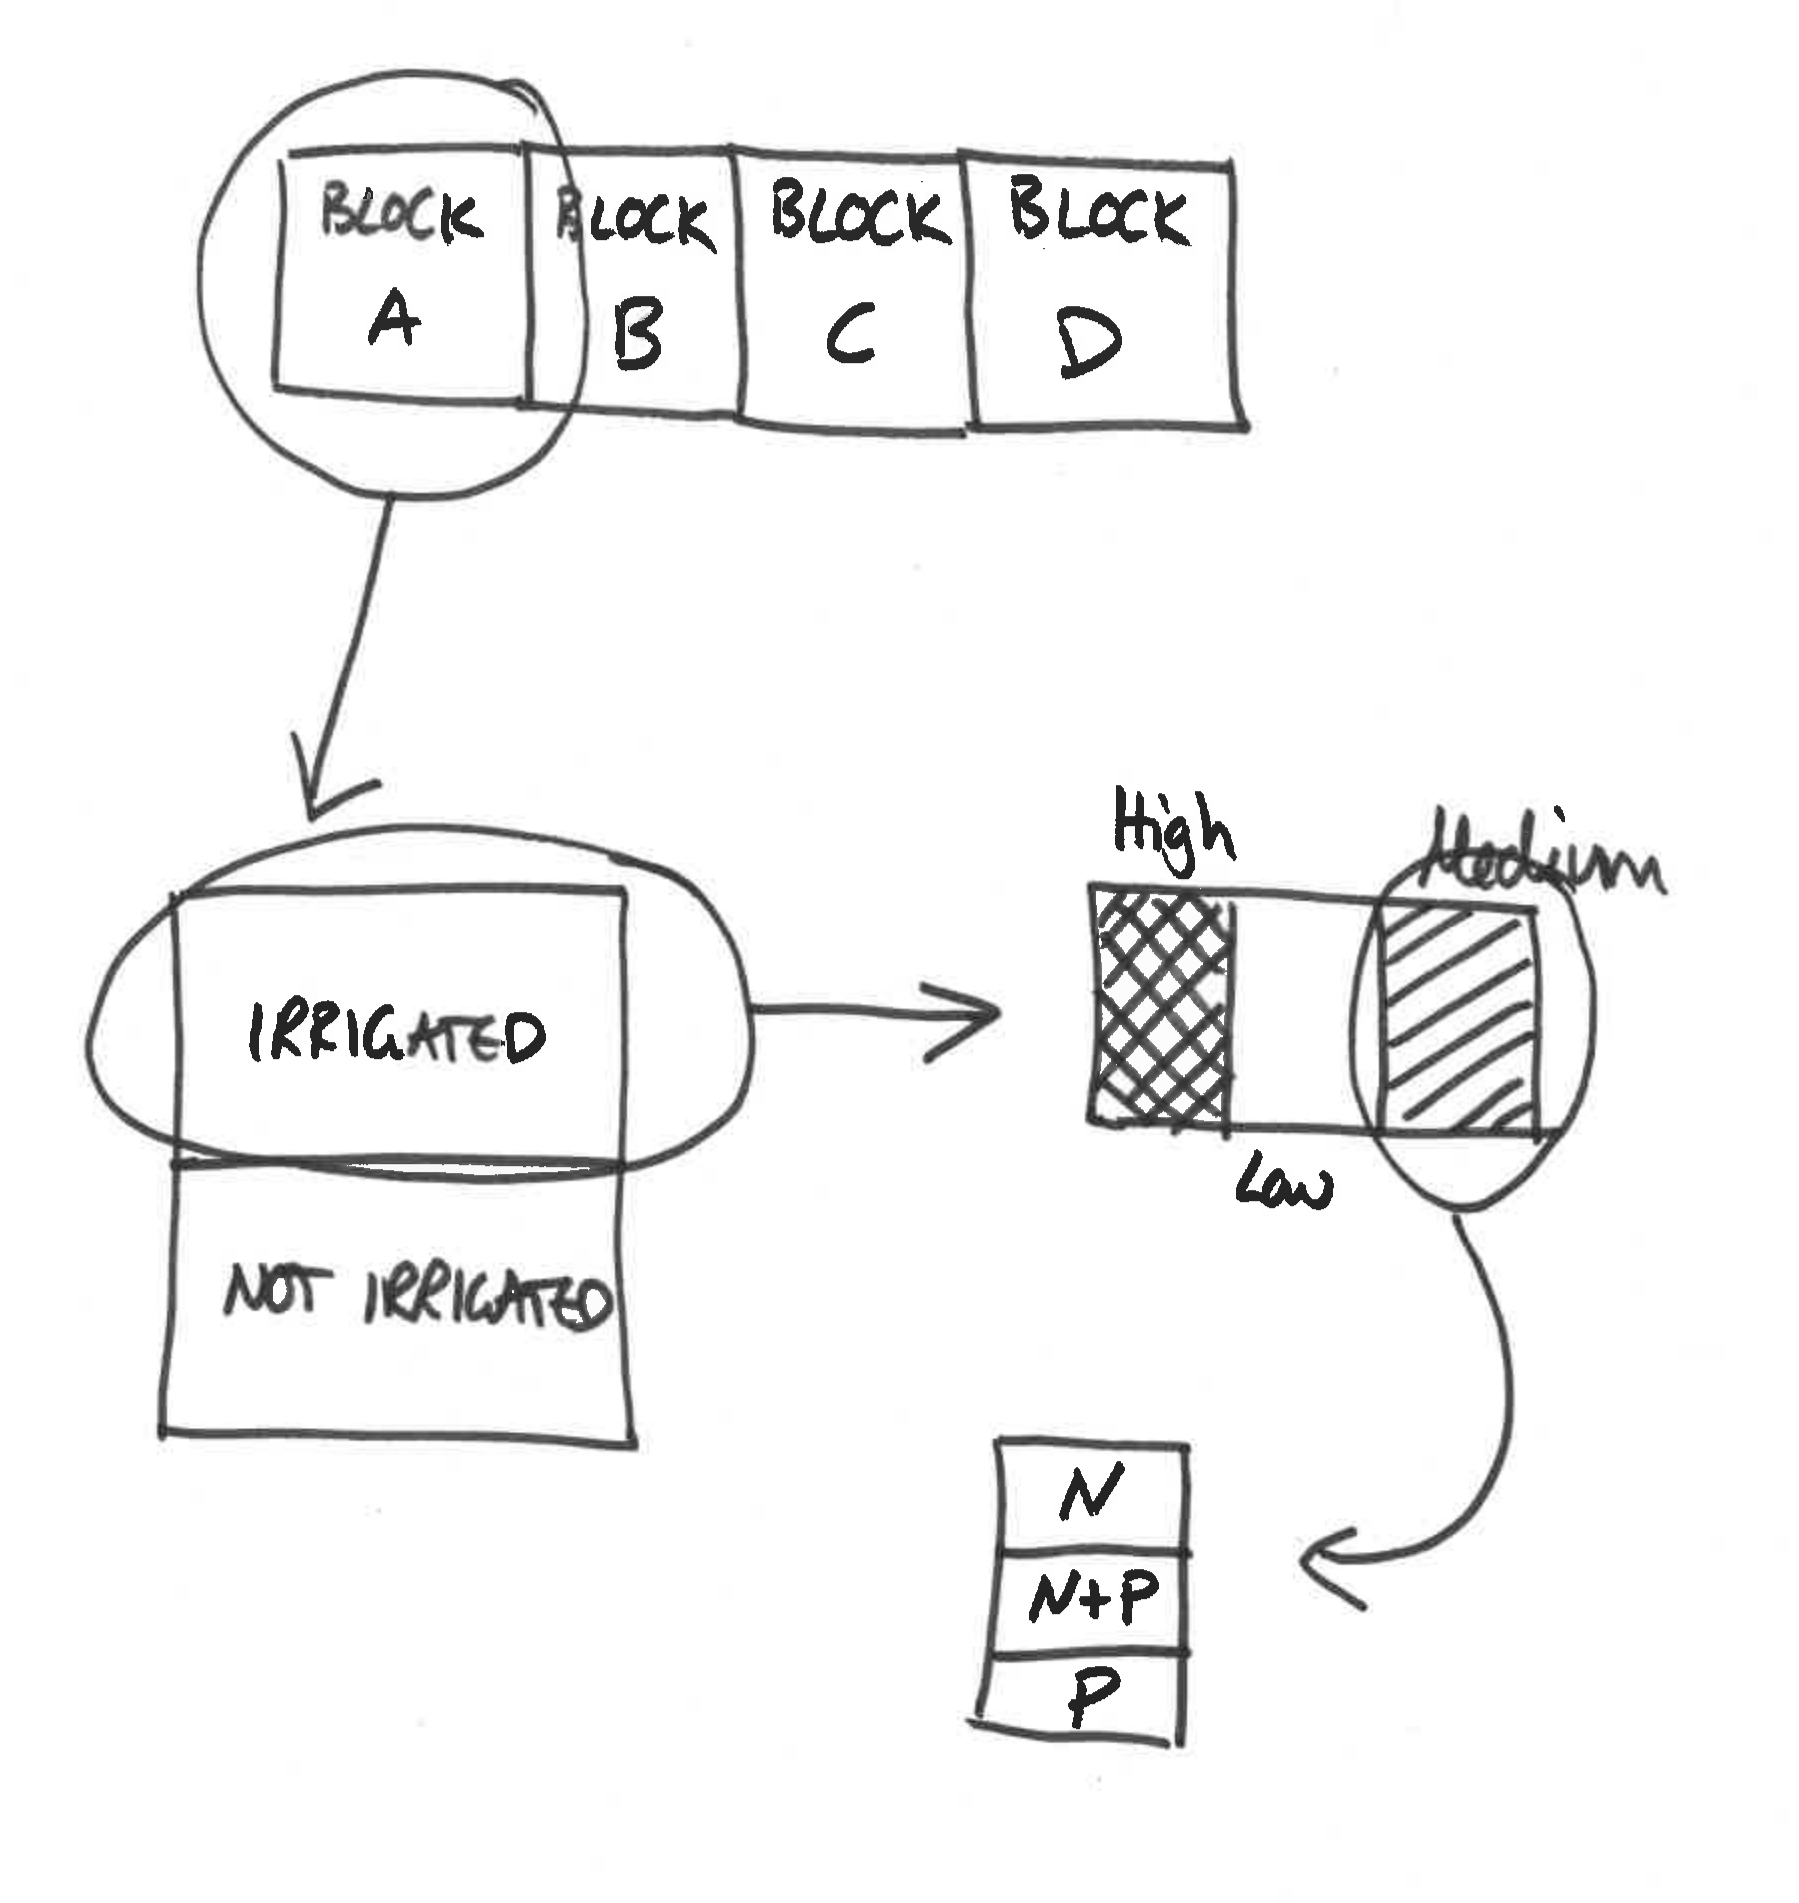 BLOCK
A
BLOCK
B
BLOCK
C
BLOCK
D
IRRIGATED
NOT IRRIGATED
High
Medium
Low
N
N+P
P